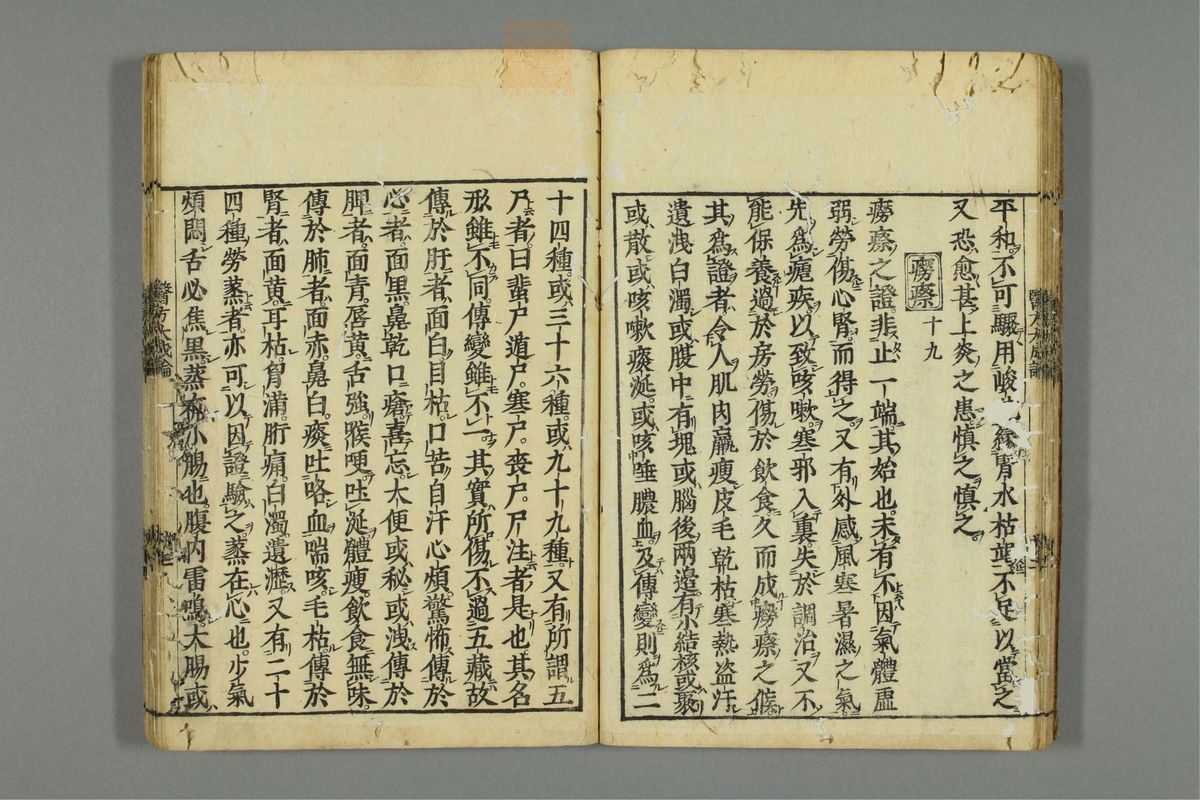 平和不可驟用峻 腎水枯竭不足以當之
又恐愈甚上炎之患慎之慎之
癆瘵 十九
癆瘵之證非止一端其始也未有不因氣體虛
弱勞傷心腎而得之又有外感風寒暑濕之氣
先為瘧疾以致咳嗽寒邪入裏失於調治又不
能保養過於房勞傷於飲食久而成癆瘵之候
其為證者令人肌肉羸瘦皮毛乾枯寒熱盜汗
遺洩白濁或腹中有塊或腦後兩邊有小結核或聚
或散或咳嗽痰涎或咳唾膿血及傳變則為二
十四種或三十六種或九十九種又有所謂五
尸者曰蜚尸遁尸寒尸喪尸尸注者是也其名
形雖不同傳變雖不一其實所傷不過五藏故
傳於肝者面白目枯口苦自汗心煩驚怖傳於
心者面黑鼻乾口瘡喜忘大便或秘或洩傳於
脾者面青唇黃舌強喉哽吐涎體瘦飲食無味
傳於肺者面赤鼻白痰吐咯血喘咳毛枯傳於
腎者面黃耳枯胷滿胻痛白濁遺瀝又有二十
四種勞蒸者亦可以因證驗之蒸在心也少氣
煩悶舌必焦黑蒸在小腸也腹內雷鳴大腸或